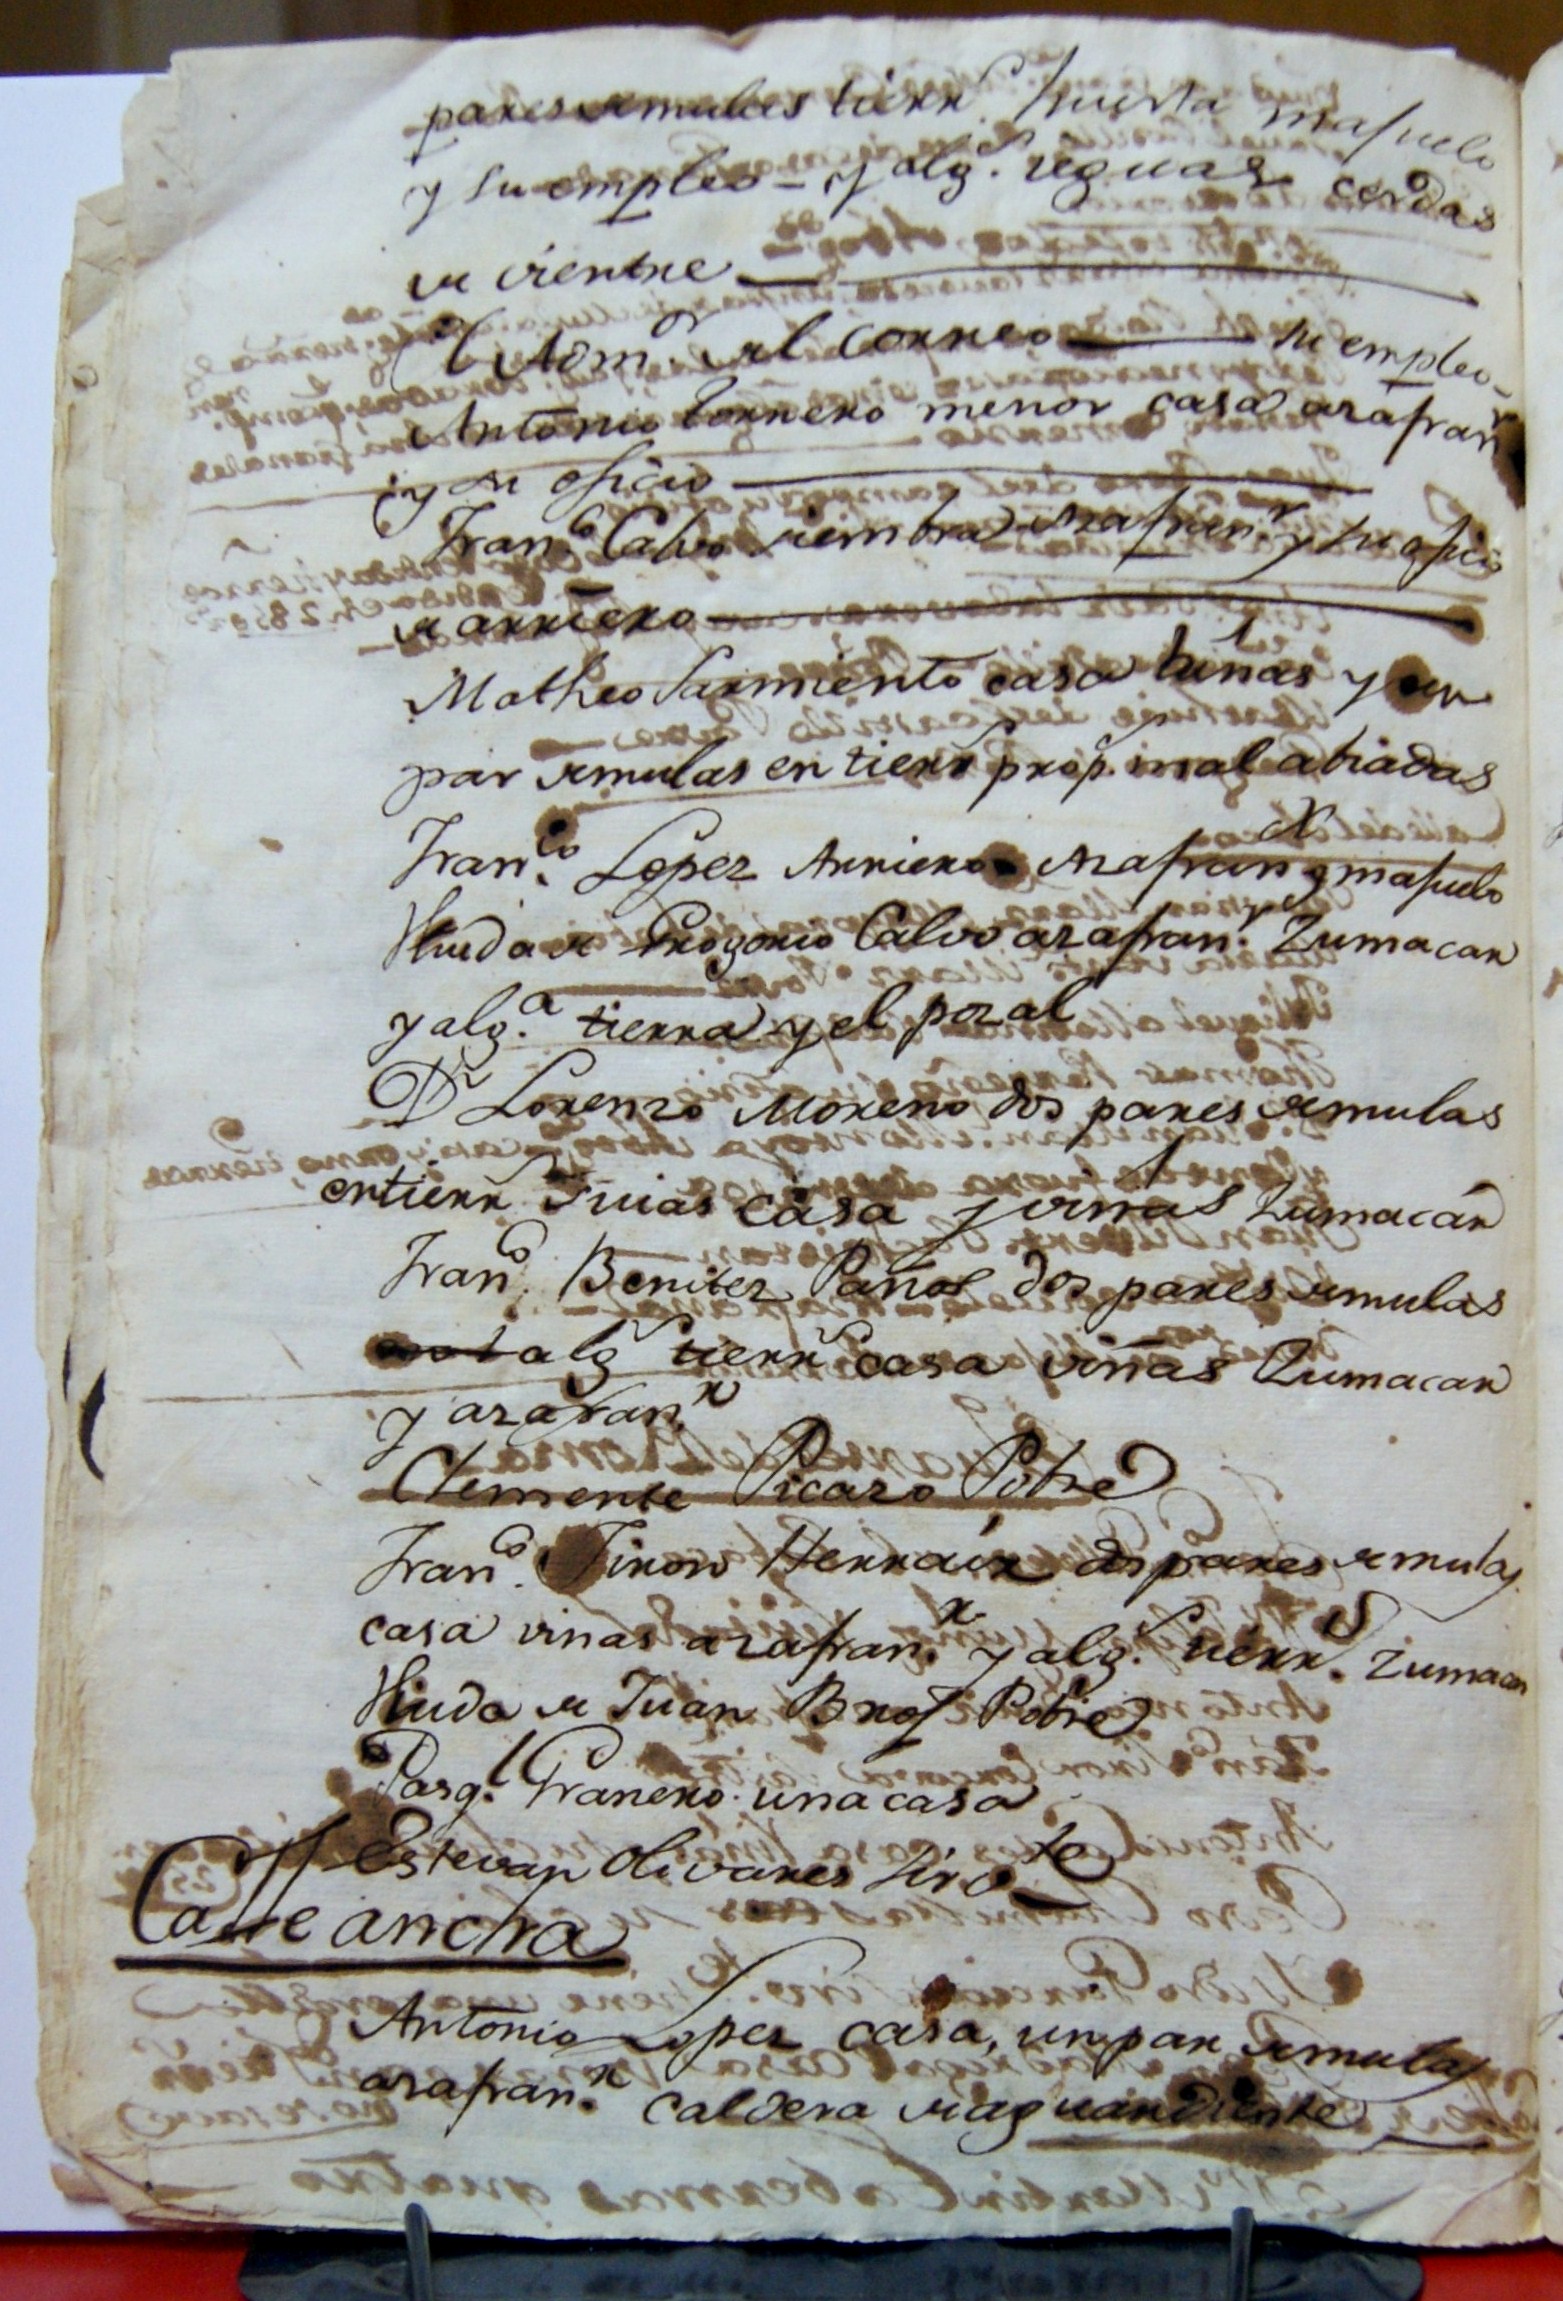 pares de mulas tierr.s huerta majuelo
y su empleo - y alg.s yeguas cerdas
de vientre
El Adm.or del Correo su empleo
Antonio Tornero menor casa azafran.r
y su oficio
Fran.co Calvo siembra Azafran.r y su oficio
de arriero
Matheo Sarmiento casa viñas y un
par de mulas en tierr.s prop.s mal abiadas
Fran.co Lopez Arriero Azafran y majuelo
Viuda de Gregorio Calvo azafran.r Zumacar
y alg.a tierra y el pozal
D.n Lorenzo Moreno dos pares de mulas
en tierr.s suias casa y viñas Zumacar
Fran.co Benitez Paños dos pares de mulas
alg.s tierr.s casa viñas Zumacar
y azafran.r
Clemente Picazo Pobre
Fran.co Jiron Herraiz dos pares de mulas
casa vinas azafran.r y alg.s tierr.s Zumacar
Viuda de Juan Pobre
Pasq.l Granero una casa
Estevan Olivares sirv.te
Calle ancha
Antonio Lopez casa, un par de mulas
azafran.r caldera de aguardiente